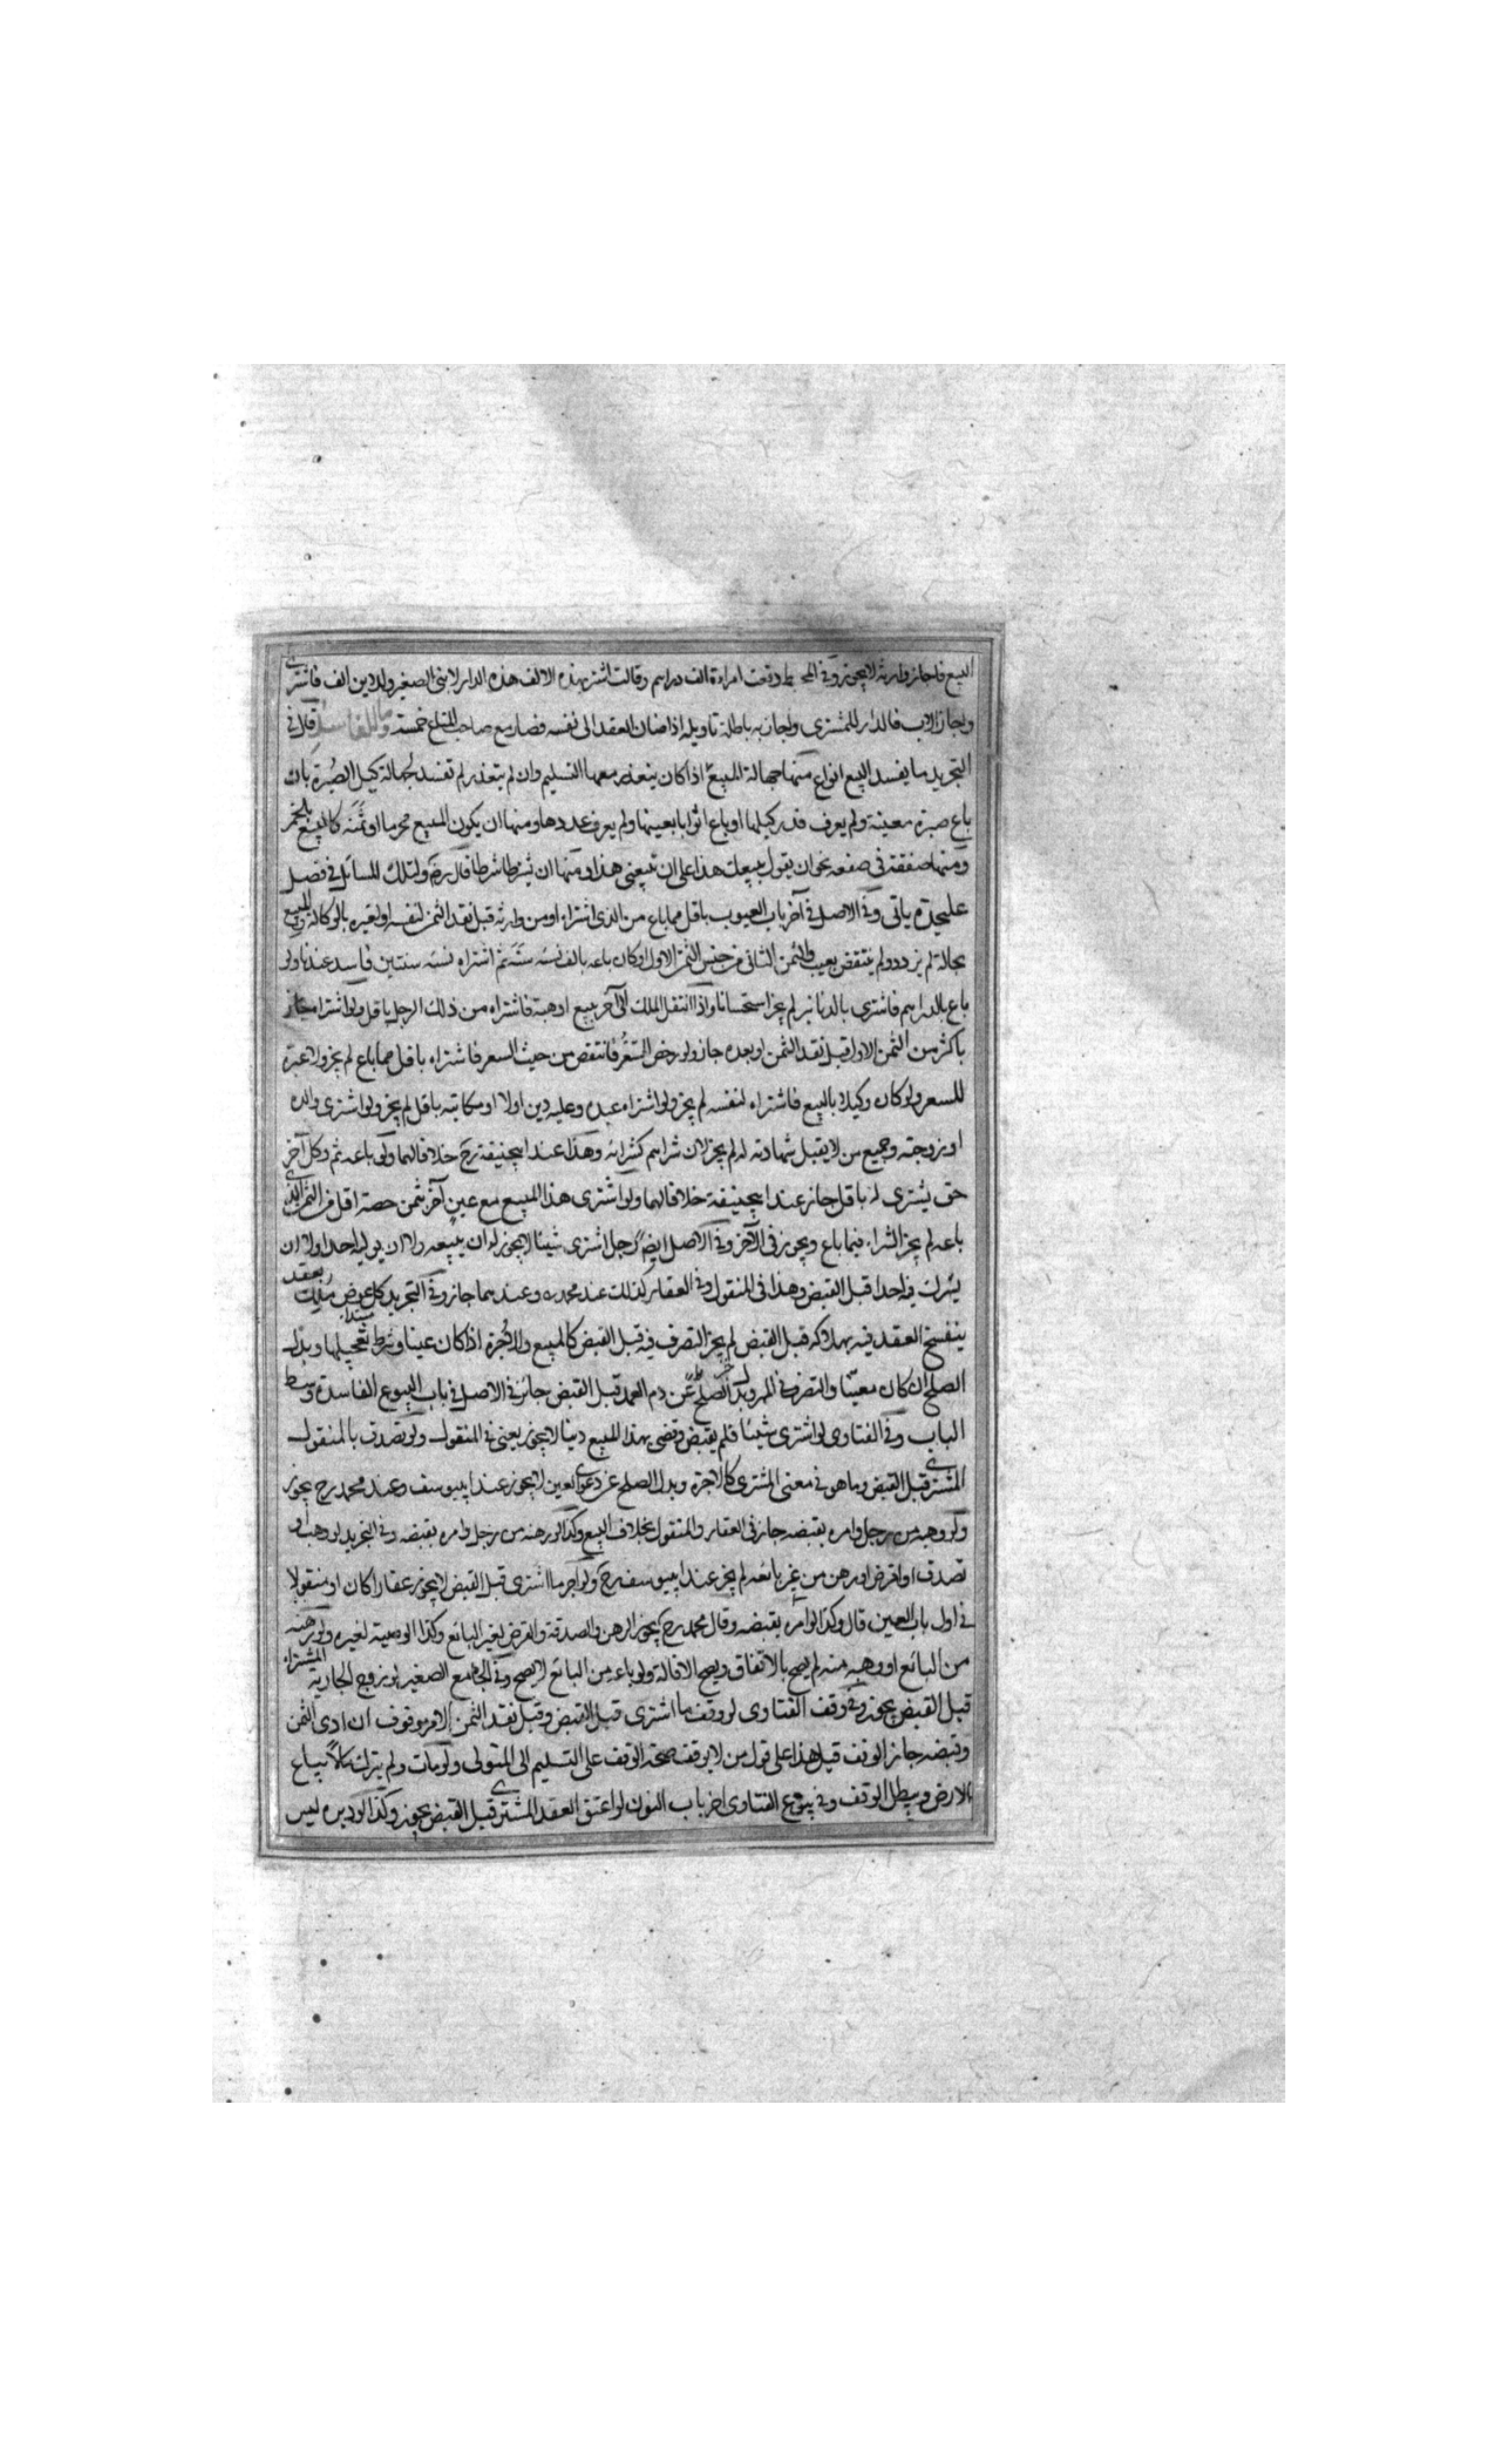 البيع فاجاز وارثه لا يجوز وفى المحيط دفعت امراءة الف دراهم وقالت اشتر بهذه الالف هذه الدار لابنى الصغير ولدين الف فاشترى
واجاز الاب فالدار للمشترى واجازته باطلة تاويله اذا ضاف العقد الى نفسه فصار مع صاحب المتاع خمسة واما الفاسد قال فى
التجريد ما يفسد البيع انواع منها جهالة المبيع اذا كان يتعذر معها التسليم وان لم يتعذر لم تفسد لجهالة كيل الصبرة بان
باع صبرة معينة ولم يعرف قدر كيلها او باع اثوابا بعينها ولم يعرف عددها ومنها ان يكون المبيع محرما او ثمنه كالبيع بالخمر
ومنها صفقة فى صفقه نحو ان يقول بيعك هذا على ان تبيعنى هذا ومنها ان يشرطا شرطا قال رضى ولتلك المسائل فى فصل
عليحدة ياتى وفى الاصل فى آخر باب العيوب باقل مما باع من الذى اشتراه او من وارثه قبل نقد الثمن لنفسه او لغيره بالوكالة والمبيع
بحالة لم يزدد ولم ينتقض بعيب والثمن الثانى من جنس الثمن الاول او كان باعه بالف نسئه سنة ثم اشتراه نسئه سنتين فاسد عندنا ولو
باع بالدراهم فاشترى بالدنانير لم يجز استحسانا واذا انتقل الملك الى آخر ببيع او هبة فاشتراه من ذلك الرجل باقل ولو اشتراه جاز
باكثر من الثمن الاول قبل نقد الثمن او بعده جاز ولو رخص السعر فانتقص من حيث السعر فاشتراه باقل مما باع لم يجز ولا عبرة
للسعر ولو كان وكيلا بالبيع فاشتراه لنفسه لم يجز ولو اشتراه عبده وعليه دين اولا او مكاتبه باقل لم يجز ولو اشترى والده
او زوجته وجميع من لا يقبل شهادته له لم يجز لان شراهم كشرائه وهذا عند ابيحنيفة رح خلافا لهما ولو باعه ثم وكل آخر
حتى يشترى له باقل جاز عند ابيحنيفة خلافا لهما ولو اشترى هذا المبيع مع عين آخر بثمن حصته اقل من الثمن الذى
باعه لم يجز الشراء فيما باع ويجوز فى الآخر وفى الاصل ايضا رجل اشترى شيئا لا يجوز له ان يبيعه ولا ان يوليه احدا ولا ان
يشرك فيه احدا قبل القبض وهذا فى المنقول وفى العقار كذلك عند محمد ره وعندهما جاز وفى التجريد كل عوض ملك بعقد
ينفسخ العقد فيه بهلاكه قبل القبض لم يجز التصرف فيه قبل القبض كالمبيع والاجرة اذا كان عينا وشرط تعجيلها وبدل
الصلح ان كان معينا والتصرف فى المهر وبدل الصلح عن دم العمد قبل القبض جائز فى الاصل فى باب البيوع الفاسدة وسط
الباب وفى الفتاوى لو اشترى شيئا فلم يقبض وقضى بهذا المبيع دينا لا يجوز يعنى فى المنقول ولو تصدق بالمنقول
المشترى قبل القبض وما هو فى معنى المشترى كالاجرة وبدل الصلح عن دعوى العين لا يجوز عند ابييوسف وعند محمد رح يجوز
ولو وهبه من رجل وامره بقبضه جاز فى العقار والمنقول بخلاف البيع وكذا لو رهنه من رجل وامره بقبضه وفى التجريد لو وهب او
تصدق او اقرض او رهن من غير بائعه لم يجز عند ابييوسف رح ولو آجر ما اشترى قبل القبض لا يجوز عقارا كان او منقولا
فى اول باب العين قال وكذا لو امره بقبضه وقال محمد رح يجوز الرهن والصدقة والقرض لغير البائع وكذا الوصية لغيره ولو رهنه
من البائع او وهبه منه لم يصح بالاتفاق ويصح الاقالة ولو باعه من البائع لا يصح وفى الجامع الصغير لو زوج الجارية المشتراة
قبل القبض يجوز وفى وقف الفتاوى لو وقف ما اشترى قبل القبض وقبل نقد الثمن الامر موقوف ان ادى الثمن
وقبضه جاز الوقف قيل هذا على قول من لا يوقف صحة الوقف على التسليم الى المتولى ولو مات ولم يترك مالا يباع
الارض ويبطل الوقف وفى بيوع الفتاوى اخر باب النون لو اعتق العقد المشترى قبل القبض يجوز وكذا لو دبره ليس